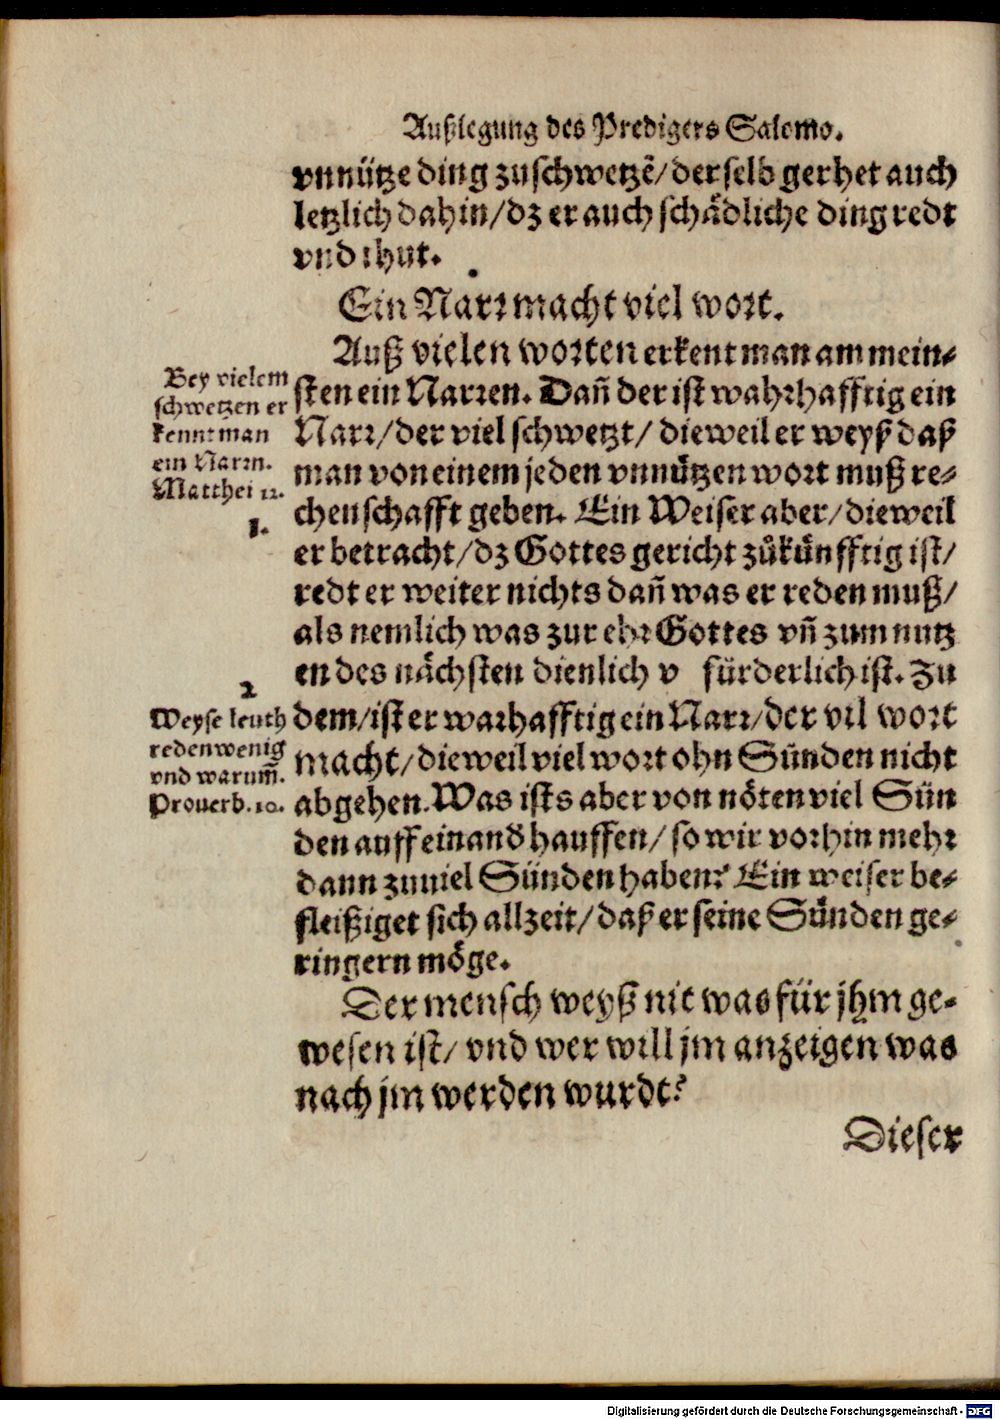 Außlegung des Predigers Salomo.
vnnütze ding zuschwetzẽ/derselb gerhet auch
letzlich dahin/dz er auch schädliche ding redt
vnd thut.
Ein Narr macht viel wort.
Auß vielen worten erkent man am mein-
sten ein Narren. Dañ der ist wahrhafftig ein
Narr/der viel schwetzt/ dieweil er weyß daß
man von einem jeden vnnützen wort muß re-
chenschafft geben. Ein Weiser aber/dieweil
er betracht/dz Gottes gericht zůkünfftig ist/
redt er weiter nichts dañ was er reden muß/
als nemlich was zur ehr Gottes vñ zum nutz
en des nächsten dienlich v fürderlich ist. Zu
dem/ist er warhafftig ein Narr/der vil wort
macht/dieweil viel wort ohn Sünden nicht
abgehen. Was ists aber von nöten viel Sün
den auff einand hauffen/ so wir vorhin mehr
dann zuuiel Sünden haben? Ein weiser be-
fleißiget sich allzeit/daß er seine Sünden ge-
ringern möge.
Der mensch weyß nit was für jhm ge-
wesen ist/ vnd wer will jm anzeigen was
nach jm werden wurdt?
Dieser
Bey vielem
schwetzen er
kennt man
ein Narrn.
Matthei 12.
1.
2
Weyse leuth
reden wenig
vnd warum̃.
Prouerb. 10.
Digitalisierung gefördert durch die Deutsche Forschungsgemeinschaft - DFG